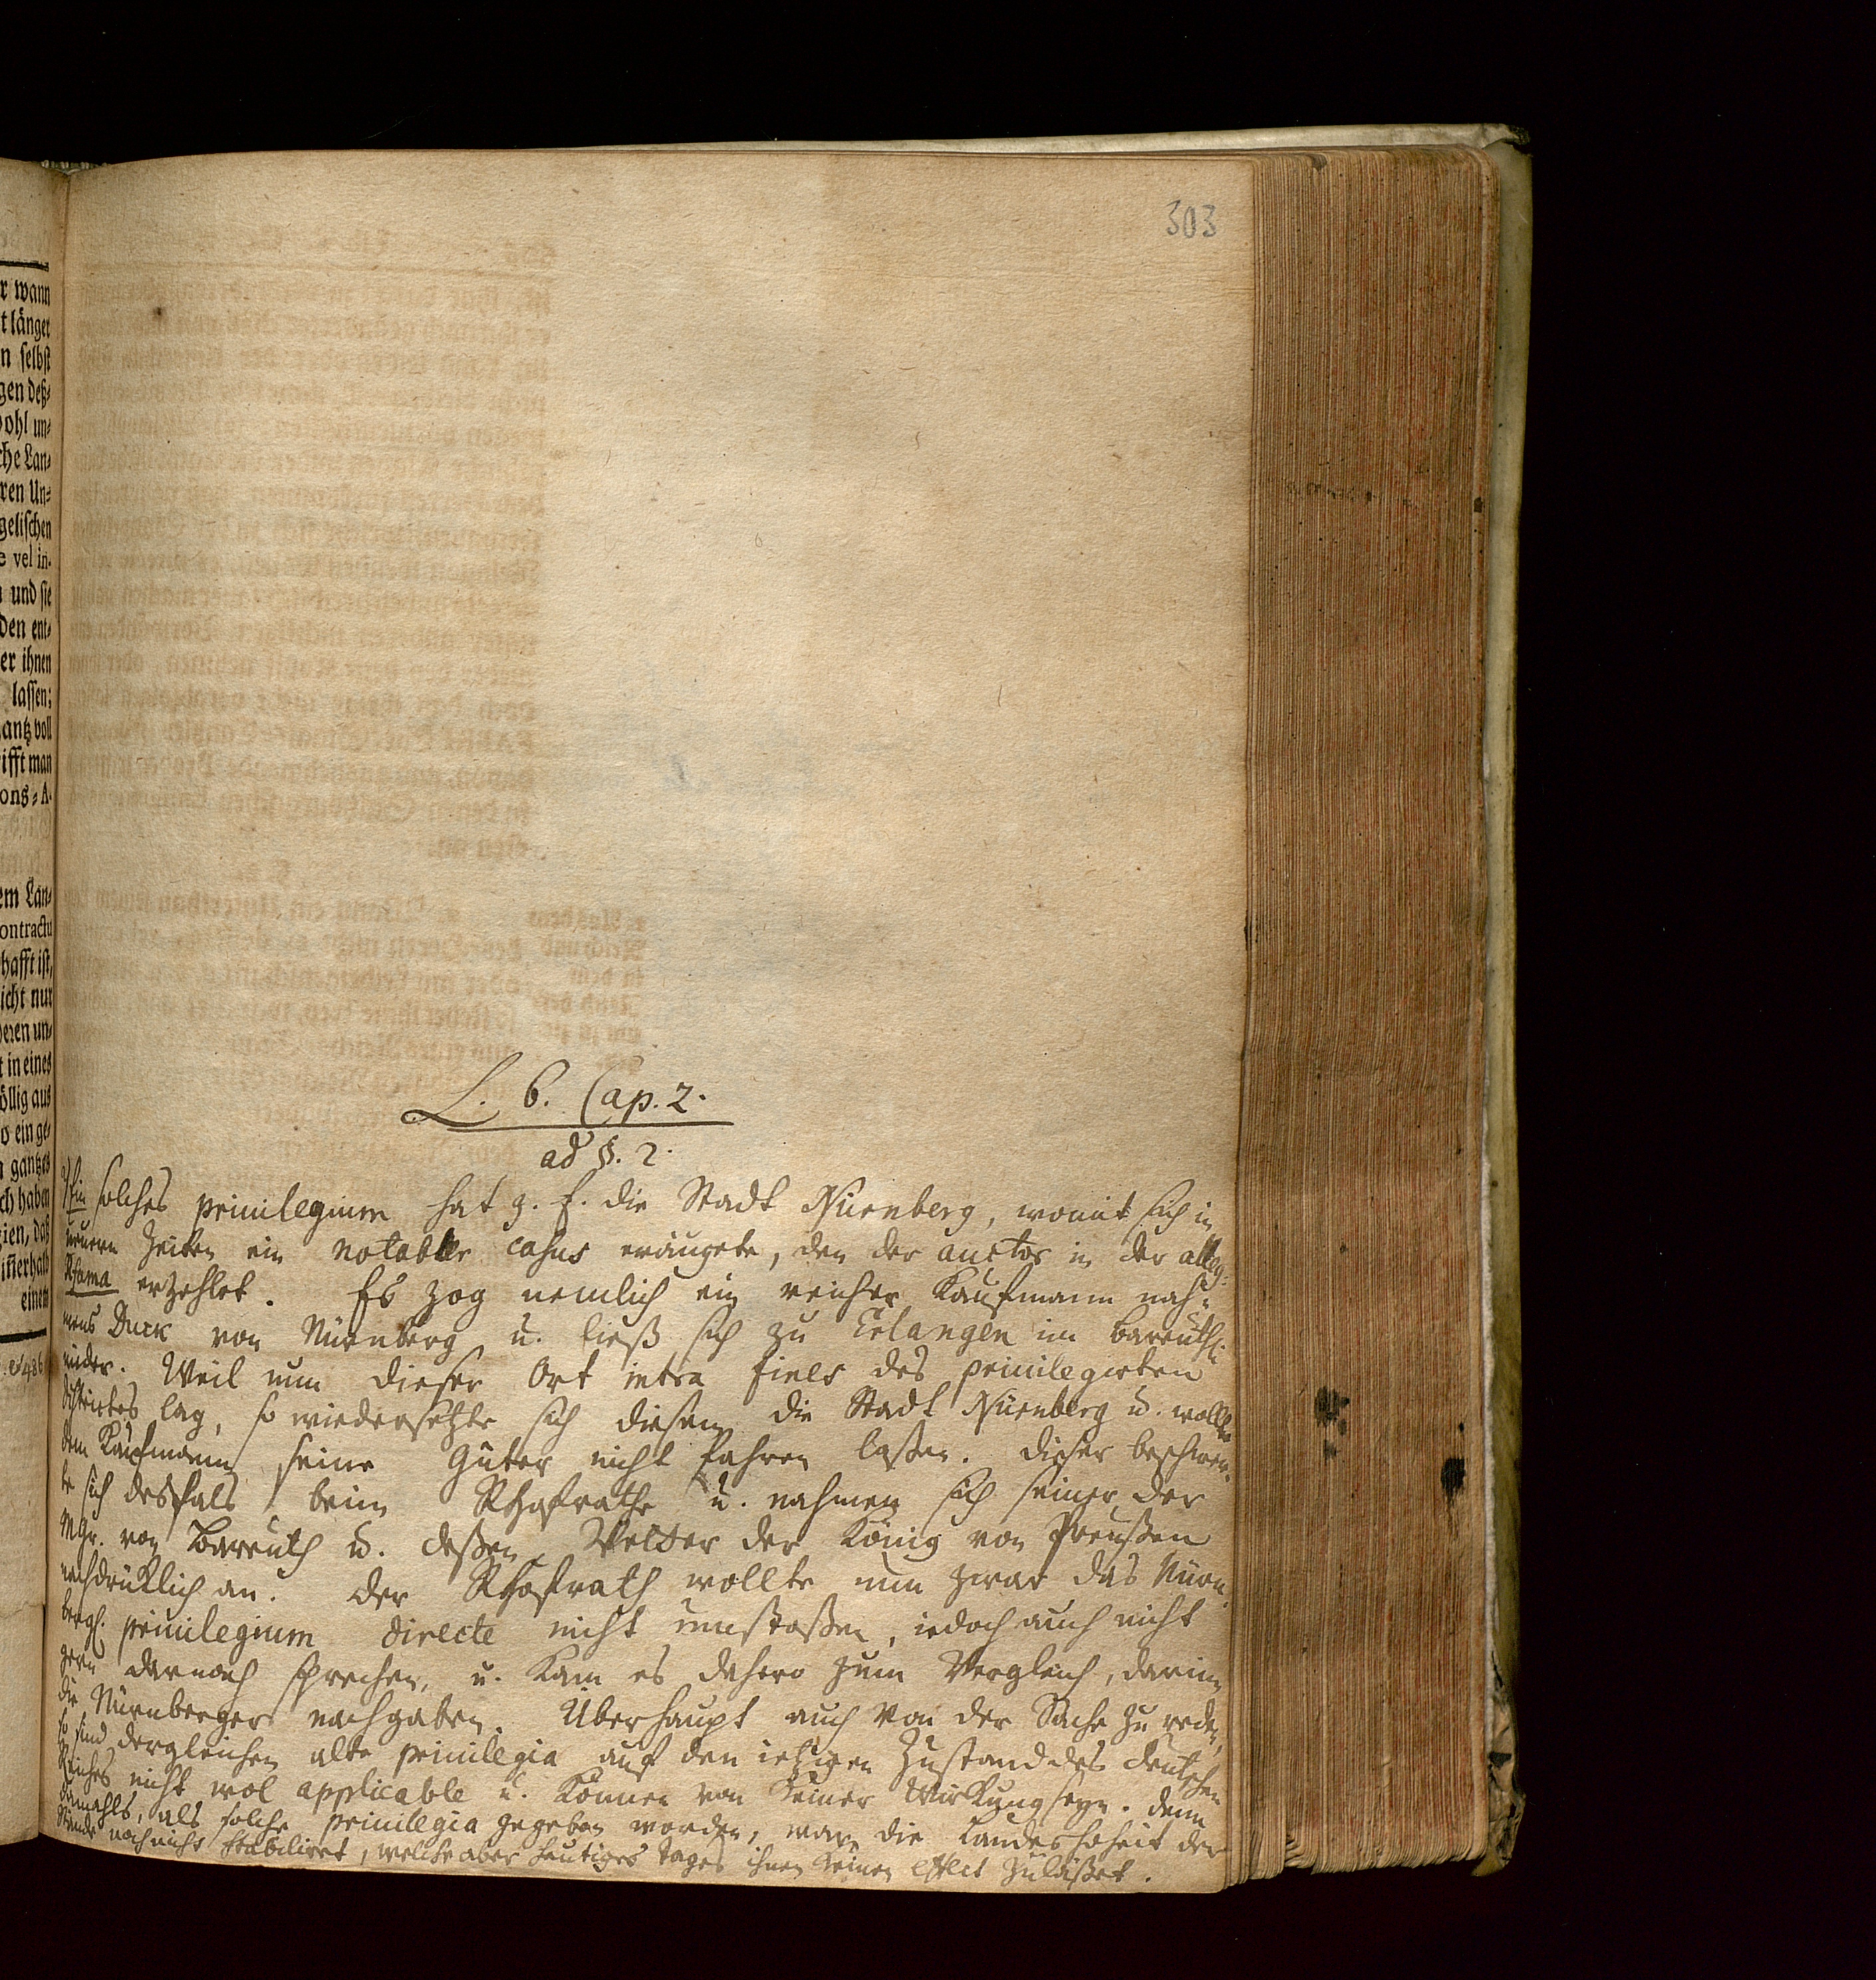 303
r wann
t länger
n selbst
gen deß-
ohl un-
che Lan-
ren Un-
gelischen
e vel in-
und sie
den ent-
er ihnen
lassen;
antz voll
ifft man
ons-A.
em Lan-
ontractu
hafft ist,
icht nur
eren un-
t in eines
öllig aus
o ein ge-
gantzes
ch haben
ien, daß
ißerhalb
einem
L. 6. Cap. 2.
ad §. 2.
Ein solches privilegium hat z. E. die Stadt Nürnberg, womit sich in
neuern Zeiten ein notabler casus eräugete, den der auctor in der
Fama erzehlet. Es zog nemlich ein reicher Kaufmann nah-
mens von Nürnberg u. ließ sich zu Erlangen im Bareuth.
nieder. Weil nun dieser Ort intra fines des privilegirten
districtes lag, so wiedersetzte sich diesem die Stadt Nürnberg u. wollte
dem Kaufmann seine Güter nicht fahren laßen. Dieser beschwer-
te sich desfals beim RHofrathe u. nahmen sich seiner der
MGr. von Bareuth u. deßen Vetter der König von Preußen
nachdrüklich an. Der RHofrath wollte nun zwar das Nürn-
bergl. privilegium directe nicht umstoßen, iedoch auch nicht
gern darnach sprechen, u. kam es dahero zum Vergleich, darin
die Nürnberger nachgaben. Überhaupt auch von der Sache zu reden,
so sind dergleichen alte privilegia auf den ietzigen Zustand des deutschen
Reiches nicht wol applicable u. können von keiner Wirkung seyn. denn
damahls, als solche privilegia gegeben worden, war die Landeshoheit der
Stände noch nicht stabiliret, welche aber heutiges Tages ihnen keinen effect zuläßet.